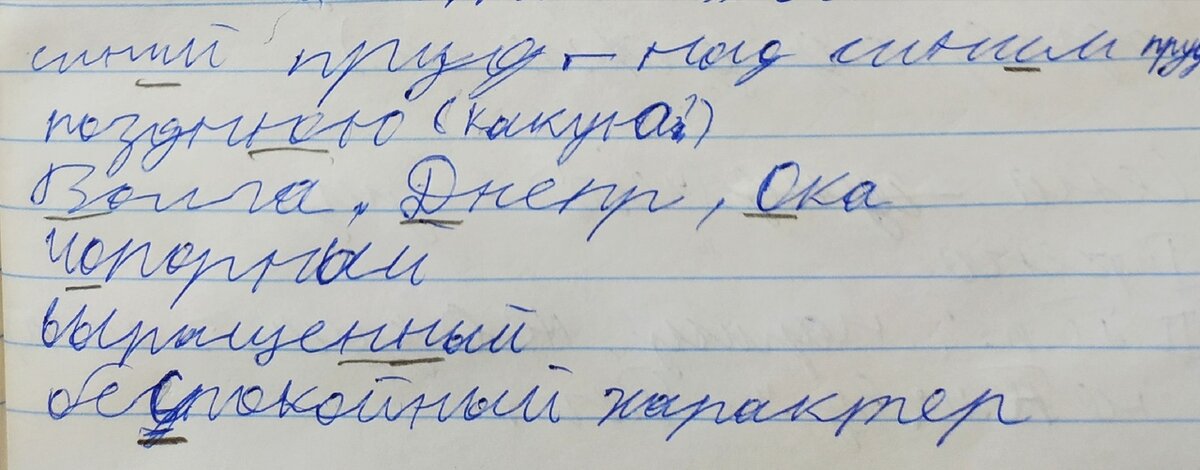 синий пруд – над синим пруд
позднюю (какую?)
Волга, Днепр, Ока
чопорный
выращенный
беспокойный характер